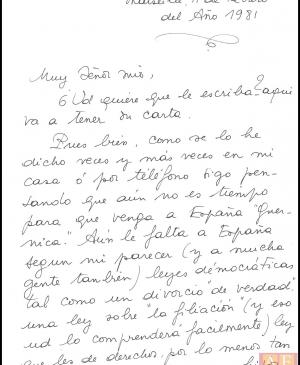 del Año 1981
Muy Señor mio,
¿Ud quiere que le escriba? aqui
va a tener su carta.
Pues bien, como se lo he
dicho veces y más veces en mi
casa ó por teléfono sigo pen-
sando que aún no es tiempo
para que venga a España "Guer-
nica." Aún le falta a España
segun mi parecer (y a mucha
gente también) leyes démocráticas
tal como un divorcio "de verdad"
una ley sobre "la filiación" (y eso
ud lo comprenderá facilmente) ley
que les de derecho, por lo menos tan